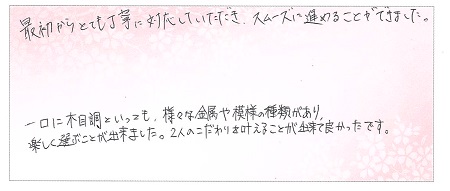 最初からとても丁寧に対応していただき、スムーズに進めることができました。
一口に木目調といっても、様々な金属や模様の種類があり、
楽しく選ぶことが出来ました。2人のこだわりを叶えることが出来て良かったです。